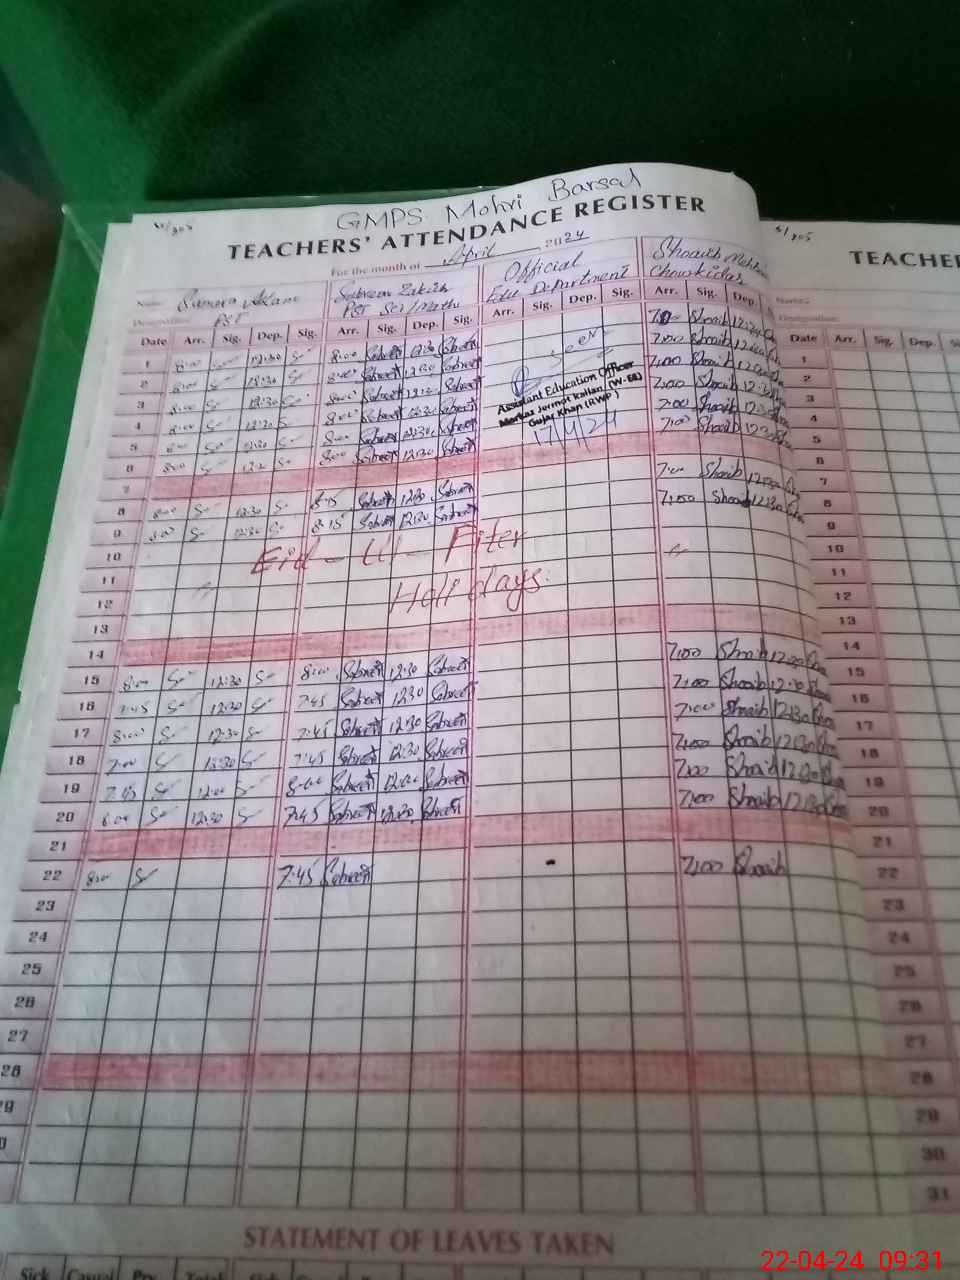 GMPS Mohri Barsal
TEACHERS' ATTENDANCE REGISTER
For the month of April 2024
Official
Edu Department
Chowkidar
PST
PST Sci/Math
Date Arr. Sig. Dep. Sig. Arr. Sig. Dep. Sig. Arr. Sig. Dep. Sig. Arr. Sig. Dep.
1 8:00 12:30 8:00 Sabreen 12:30 Sabreen 7:00 Shoaib
2 8:00 12:30 8:00 Sabreen 12:30 Sabreen Seen 7:00 Shoaib
3 8:00 12:30 8:00 Sabreen 12:30 Sabreen 7:00 Shoaib
Assistant Education Officer
Markaz Jermot Kallan (W-EE)
Gujar Khan (RWP)
17/4/24
4 8:00 12:30 8:00 Sabreen 12:30 Sabreen 7:00 Shoaib
5 8:00 12:30 8:00 Sabreen 12:30 Sabreen 7:00 Shoaib
6 8:00 8:00 Sabreen 12:30 Sabreen 7:00 Shoaib
7
8 8:00 12:30 8:15 Sabreen 12:30 Sabreen 7:00 Shoaib 12:30
9 8:00 12:30 8:15 Sabreen 12:30 Sabreen 7:00 Shoaib 12:30
10 Eid-Ul-Fiter
11
12 Holidays.
13
14
15 8:00 12:30 8:00 Sabreen 12:30 Sabreen 7:00 Shoaib
16 7:45 12:30 7:45 Sabreen 12:30 Sabreen 7:00 Shoaib 12:30
17 8:00 12:30 7:45 Sabreen 12:30 Sabreen 7:00 Shoaib 12:30
18 12:30 7:45 Sabreen 12:30 Sabreen 7:00 Shoaib 12:30
19 7:45 12:00 8:00 Sabreen 12:00 Sabreen 7:00 Shoaib
20 8:00 12:30 7:45 Sabreen 12:30 Sabreen 7:00 Shoaib 12:30
21
22 8:00 7:45 Sabreen 7:00 Shoaib
23
24
25
26
27
28
29
STATEMENT OF LEAVES TAKEN
Sick Casual
TEACHE
Name:
Designation:
Date Arr. Sig. Dep.
1
2
3
4
5
6
7
8
9
10
11
12
13
14
15
16
17
18
19
20
21
22
23
24
25
26
27
28
29
30
31
22-04-24 09:31